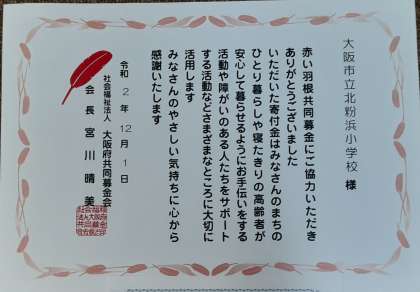 大阪市立北粉浜小学校 様
赤い羽根共同募金にご協力いただき
ありがとうございました
いただいた寄付金はみなさんのまちの
ひとり暮らしや寝たきりの高齢者が
安心して暮らせるようにお手伝いをする
活動や障がいのある人たちをサポート
する活動などさまざまなところに大切に
活用します
みなさんのやさしい気持ちに心から
感謝いたします
令和 2 年 12 月 1 日
社会福祉法人 大阪府共同募金会
会長 宮川晴美